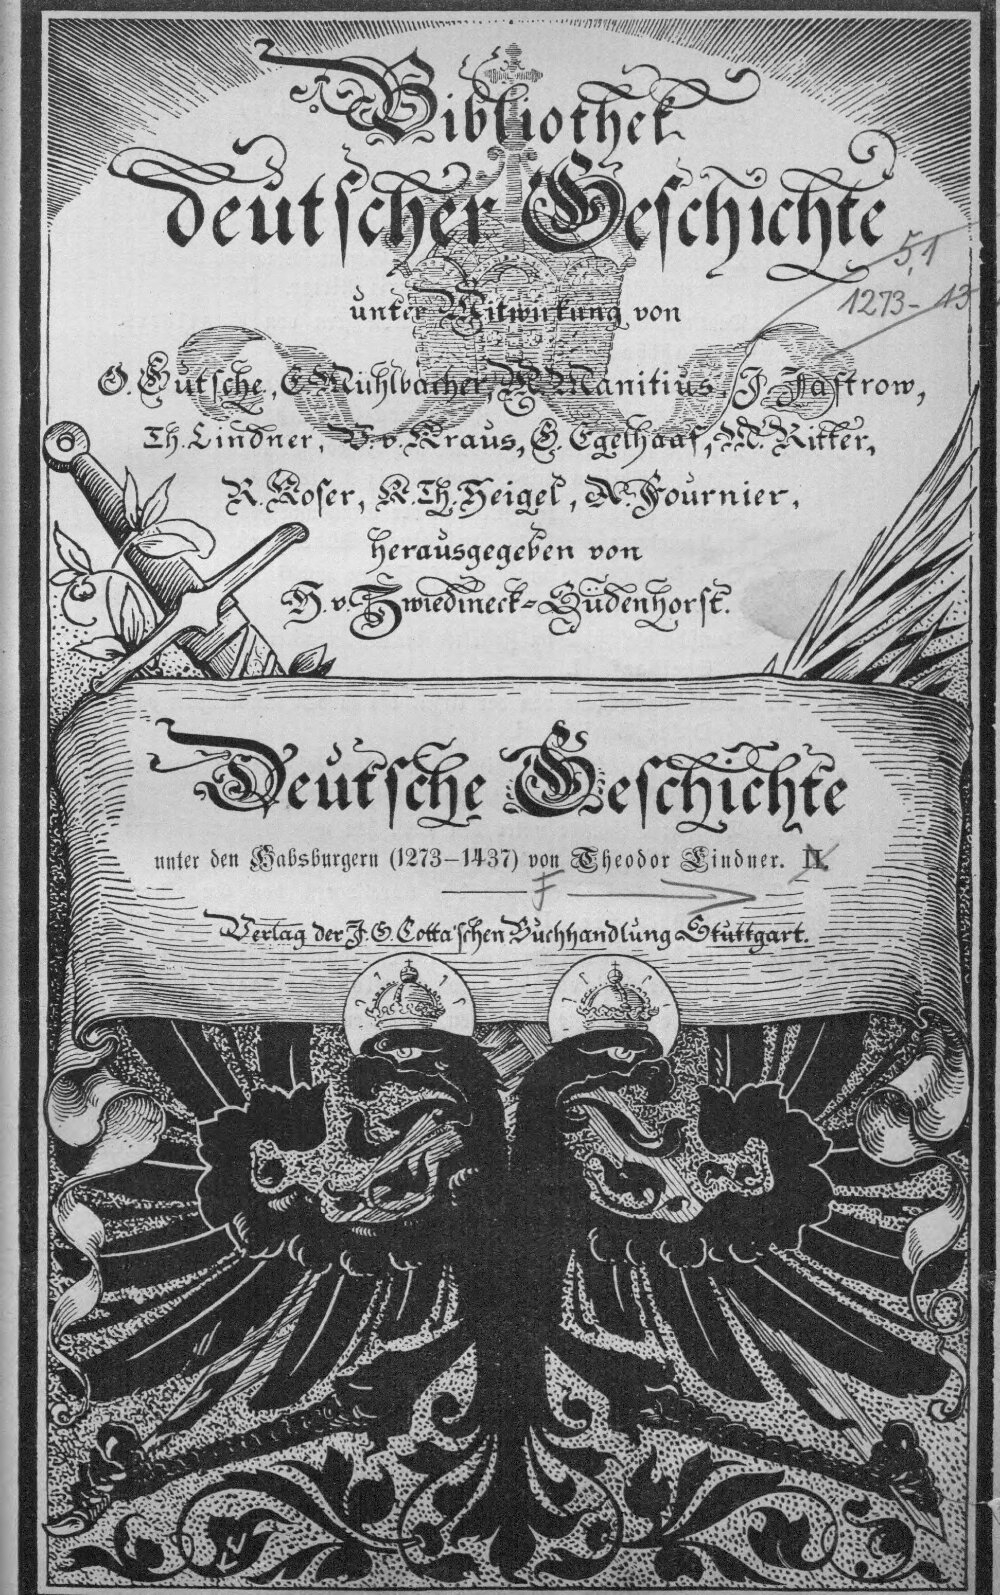 Bibliothek
deutscher Geschichte
5,1
1273-13
unter Mitwirkung von
O. Gutsche, E. Mühlbacher, M. Manitius, J. Jastrow,
Th. Lindner, V. v. Kraus, G. Egelhaaf, M. Ritter,
R. Koser, K. Th. Heigel, A. Fournier,
herausgegeben von
H. v. Zwiedineck-Südenhorst.
Deutsche Geschichte
unter den Habsburgern (1273–1437) von Theodor Lindner. II.
F
Verlag der J. G. Cotta'schen Buchhandlung Stuttgart.